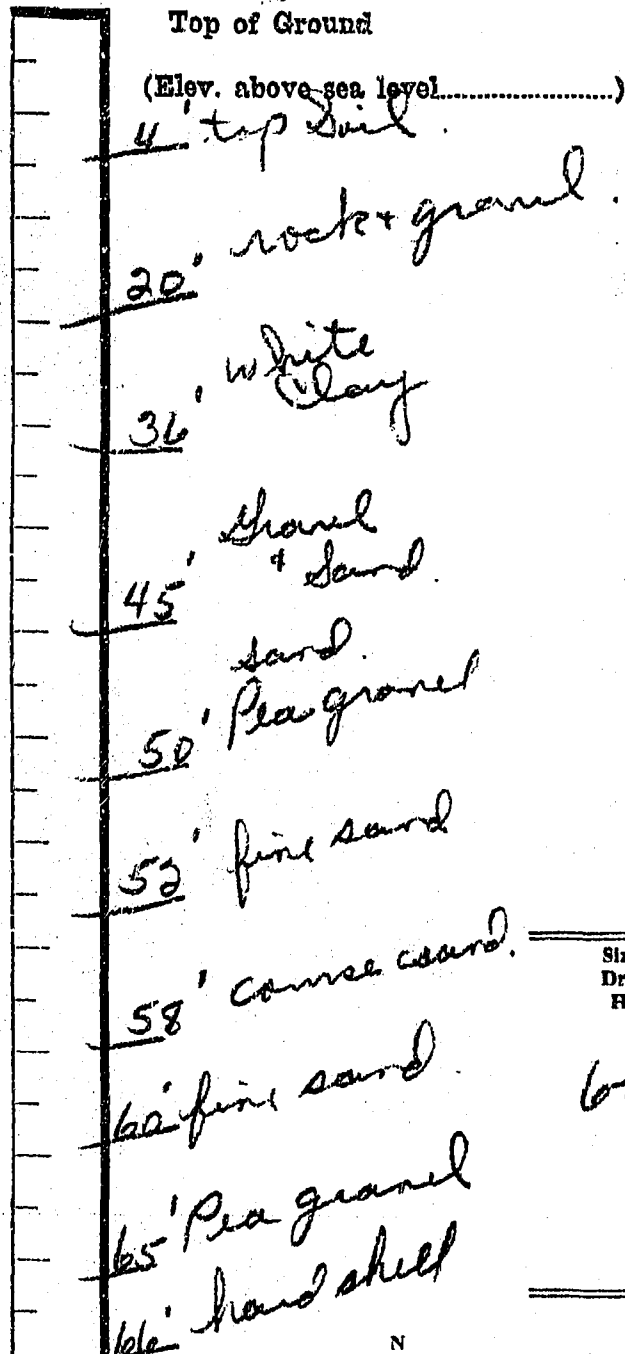 Top of Ground
(Elev. above sea level....................)
4' top soil.
rock + gravel.
20'
white
Clay
36'
Gravel
+ Sand.
45'
sand.
50' Pea gravel
52' fine sand
58' course sand.
60' fine sand
65' Pea gravel
66' hard shell
N